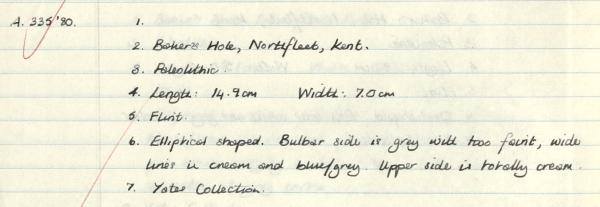 A. 335 '80.
1.
2. Baker's Hole, Northfleet, Kent.
3. Paleolithic
4. Length: 14.9cm Width: 7.0cm
5. Flint.
6. Elliptical shaped. Bulbar side is grey with two faint, wide
lines in cream and blue/grey. Upper side is totally cream.
7. Yates Collection.